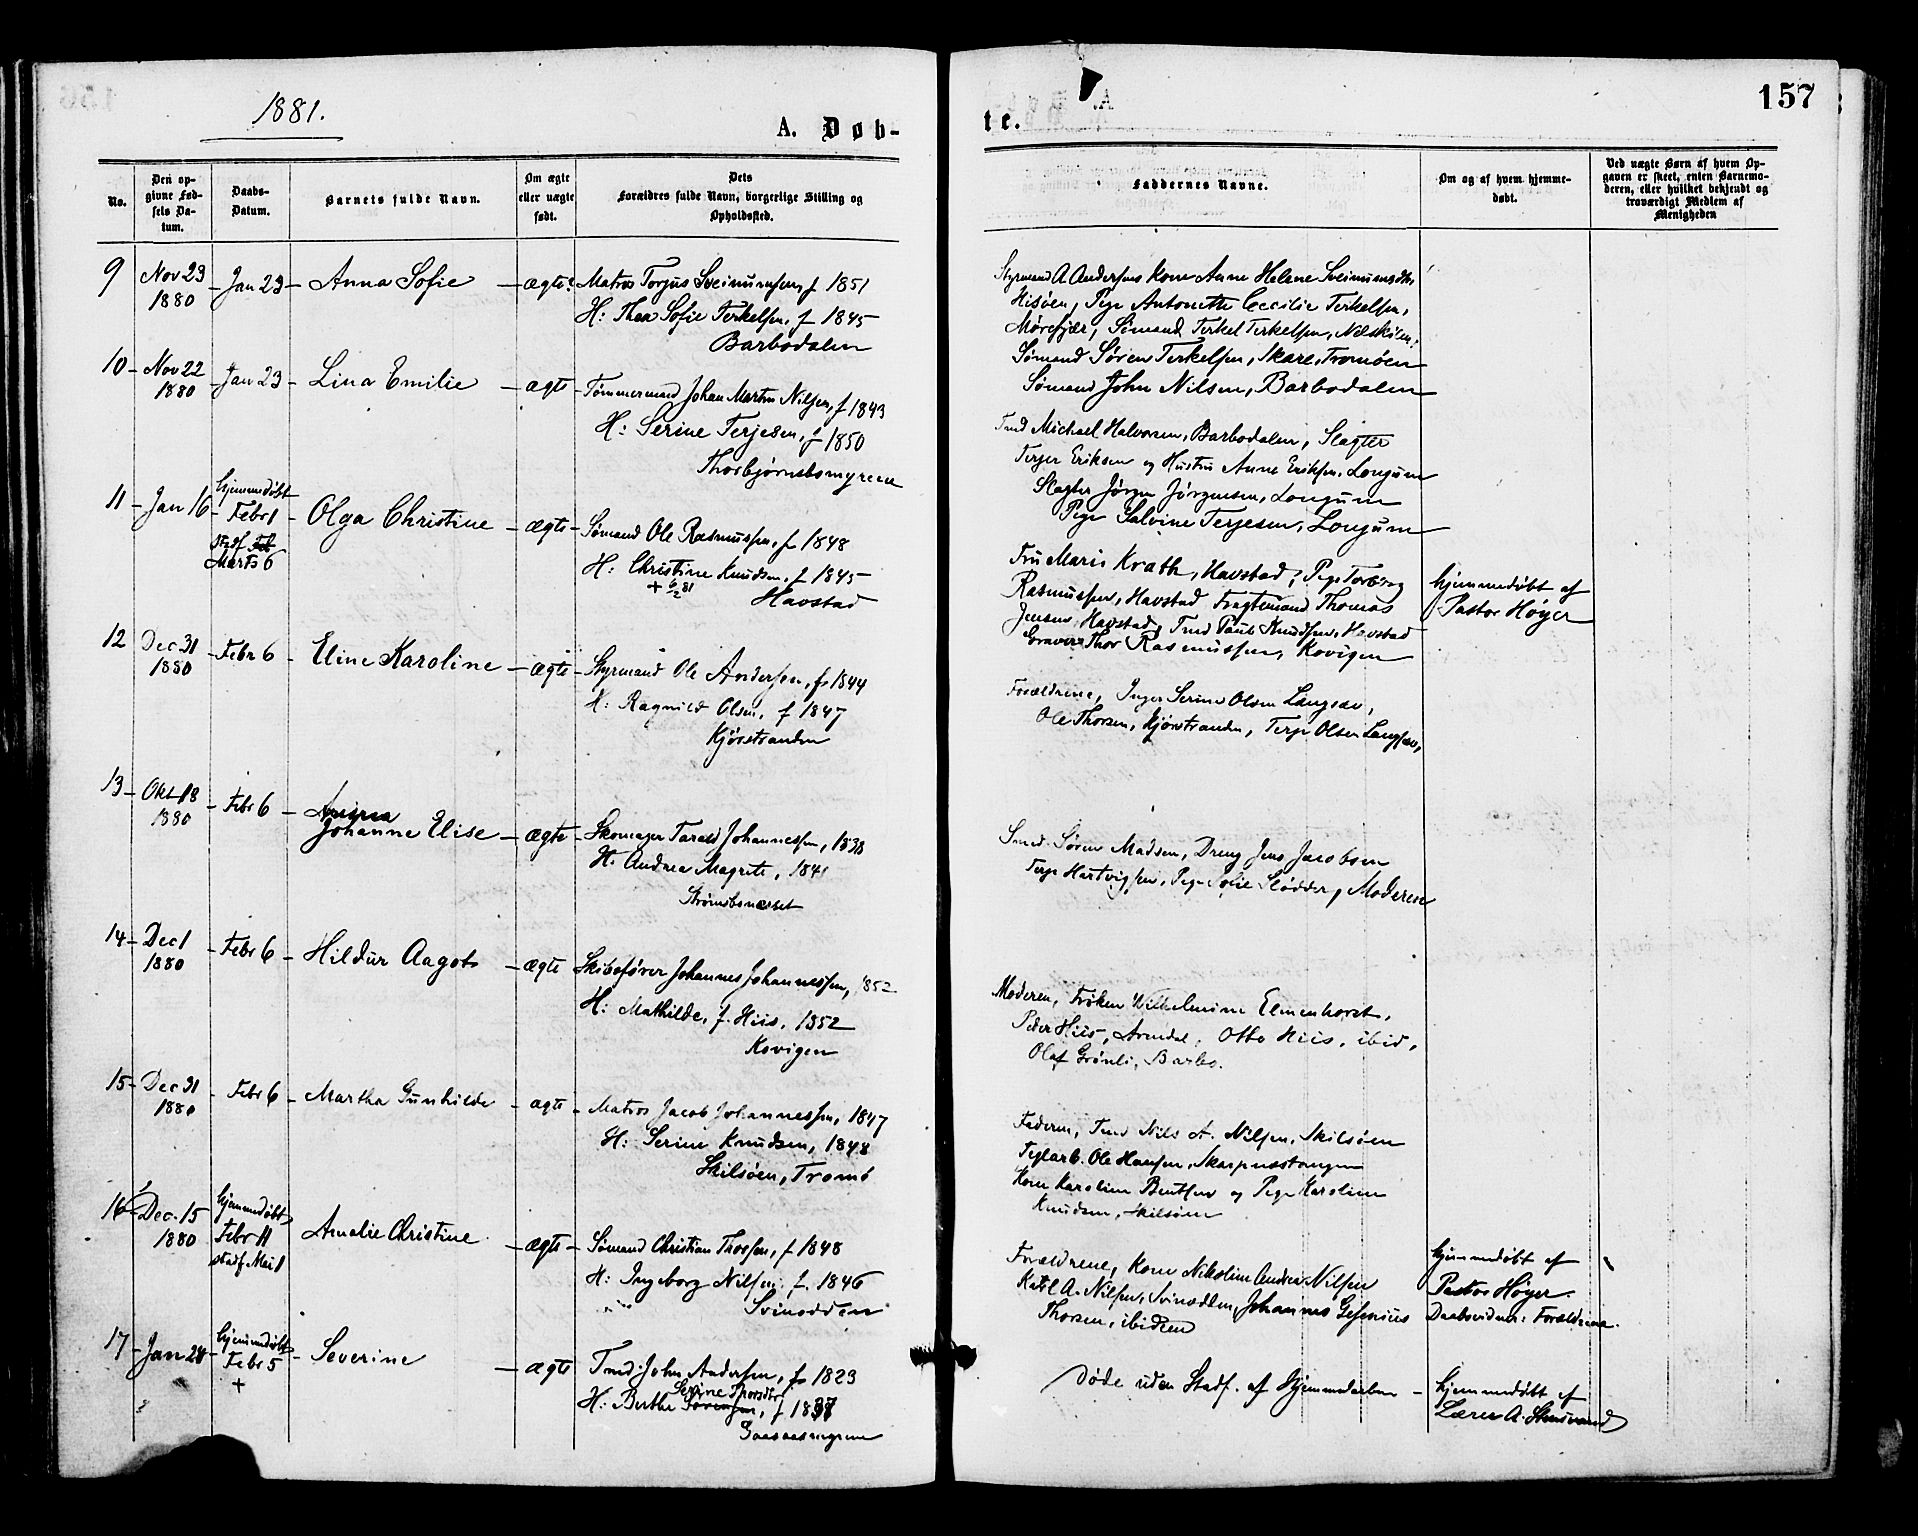 1881.
A. Døb-
No.
Den op-
givne Fød-
sels Da-
tum.
Daabs-
Datum.
Barnets fulde Navn.
Om ægte
eller uægte
født.
Dets
Forældres fulde Navn, borgerlige Stilling og
Opholdssted.
9 Nov 23 1880 - Jan 23 - Anna Sofie - ægte
Matros Torjus Sveinunsen, f 1851
H: Thea Sofie Terkelsen, f 1845
Barbodalen
10 - Nov 22 1880 - Jan 23 - Lina Emilie - ægte
Tømmermand Johan Martin Nilsen, f 1843
H: Serine Terjesen, f 1850
Thorbjørnsbomyrene
11 - Jan 16 - hjemmedøbt Febr 1 stadf Marts 6 - Olga Christine - ægte
Sømand Ole Rasmussen, f 1848
H: Christine Knudsen, f 1845
+ 6/2 81
Havstad
12 Dec 31 1880 - Febr 6 - Eline Karoline - ægte
Styrmand Ole Andersen, f 1844
H: Ragnild Olsen, f 1847
Kjørstranden
13 - Okt 18 1880 - Febr 6 - Johanne Elise - ægte
Skomager Tarald Johannessen, 1838
H: Andrea Magrete, 1841
Strømsbonæsset
14 - Dec 1 1880 - Febr 6 - Hildur Aagot - ægte
Skibsfører Johannes Johannessen, 1852
H: Mathilde, f. Hiis, 1852
Kovigen
15 - Dec 31 1880 - Febr 6 - Martha Gunhilde - ægte
Matros Jacob Johannessen, 1847
H: Serine Knudsen, 1848
Skilsøen, Tromø
16 - Dec. 15 1880 hjemmedøbt Febr 11 stadf Mai 1 Amalie Christine - ægte
Sømand Christian Thorsen, f 1848
H: Ingeborg Nilsen, f. 1846
Svinodden
17 - Jan 28 - hjemmedøbt Febr 5 + - Severine - ægte
Tmd. John Andersen, f 1823
Serine Thorsdtr
H: Berthe Sørensen, f 1837
te.
157
Faddernes Navne.
Om og af hvem hjemme-
døbt.
Ved uægte Børn af hvem Op-
gaven er skeet, enten Barnemo-
deren, eller hvilket bekjendt og
troværdigt Medlem af
Menigheden
Styrmand A Andersens Kone Anne Helene Sveinunsdtr
Hisøen, Pige Antonette Cecilie Terkelsen,
Mørefjær, Sømand Terkel Terkelsen, Næskilen,
Sømand Søren Terkelsen, Skare, Tromøen
Sømand John Nilsen, Barbodalen
Tmd Michael Halvorsen, Barbodalen, Slagter
Terjer Eriksen og Hustru Anne Eriksen, Longum
Slagter Jørgen Jørgensen, Longum
Pige Salvine Terjesen, Longum
Fru Marie Krath, Havstad, Pige Torborg
Rasmussen, Havstad Fragtemand Thomas
Jensen, Havstad, Tmd Paul Knudsen, Havstad
Graver Thor Rasmussen, Kovigen
hjemmedøbt af
Pastor Høyer
Forældrene, Inger Serine Olsen Langsæv,
Ole Thorsen, Kjørstranden, Terje Olsen Langsæv,
Smed Søren Madsen, Dreng Jens Jacobsen
Terje Hartvigsen, Pige Sofie Slødder, Moderen
Moderen, Frøken Wilhelmine Elmenhorst,
Peder Hiis, Arendal, Otto Hiis, ibid,
Olaf Grønli, Barbo.
Faderen, Tmd Nils A. Nilsen, Skilsøen
Teglarb. Ole Hansen, Skarpnæstangen
Kone Karoline Bentsen og Pige Karoline
Knudsen, Skilsøen
Forældrene, Kone Nikoline Andrea Nilsen
Ketil A. Nilsen, Svinodden, Johannes Gesenius
Thorsen, ibidem
hjemmedøbt af
Pastor Høyer.
Daabsvidner: Forældrene.
Døde uden Stadf. af Hjemmedaaben -
hjemmedøbt af
Lærer A. Stensvand